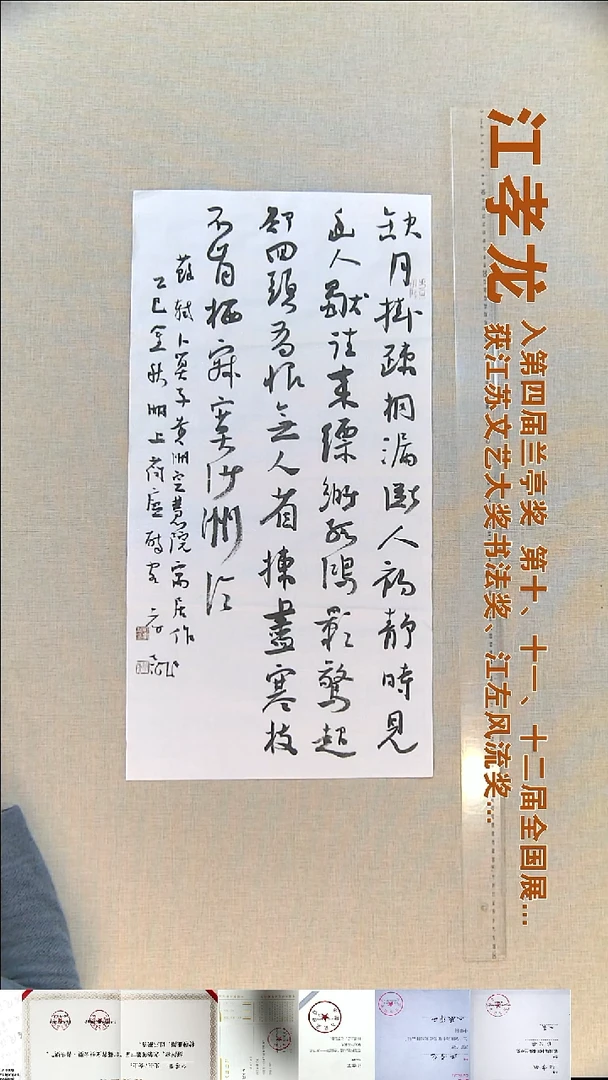 江孝龙
入第四届兰亭奖 第十、十一、十二届全国展...
获江苏文艺大奖书法奖、江左风流奖...
缺月掛疎桐漏断人初静時見
幽人獸往来縹緲孤鴻影驚起
却回頭有恨無人省揀盡寒枝
不肯栖寂寞沙洲冷
蘇軾卜算子黄州定慧院寓居作
乙巳金秋湖上
孝龍